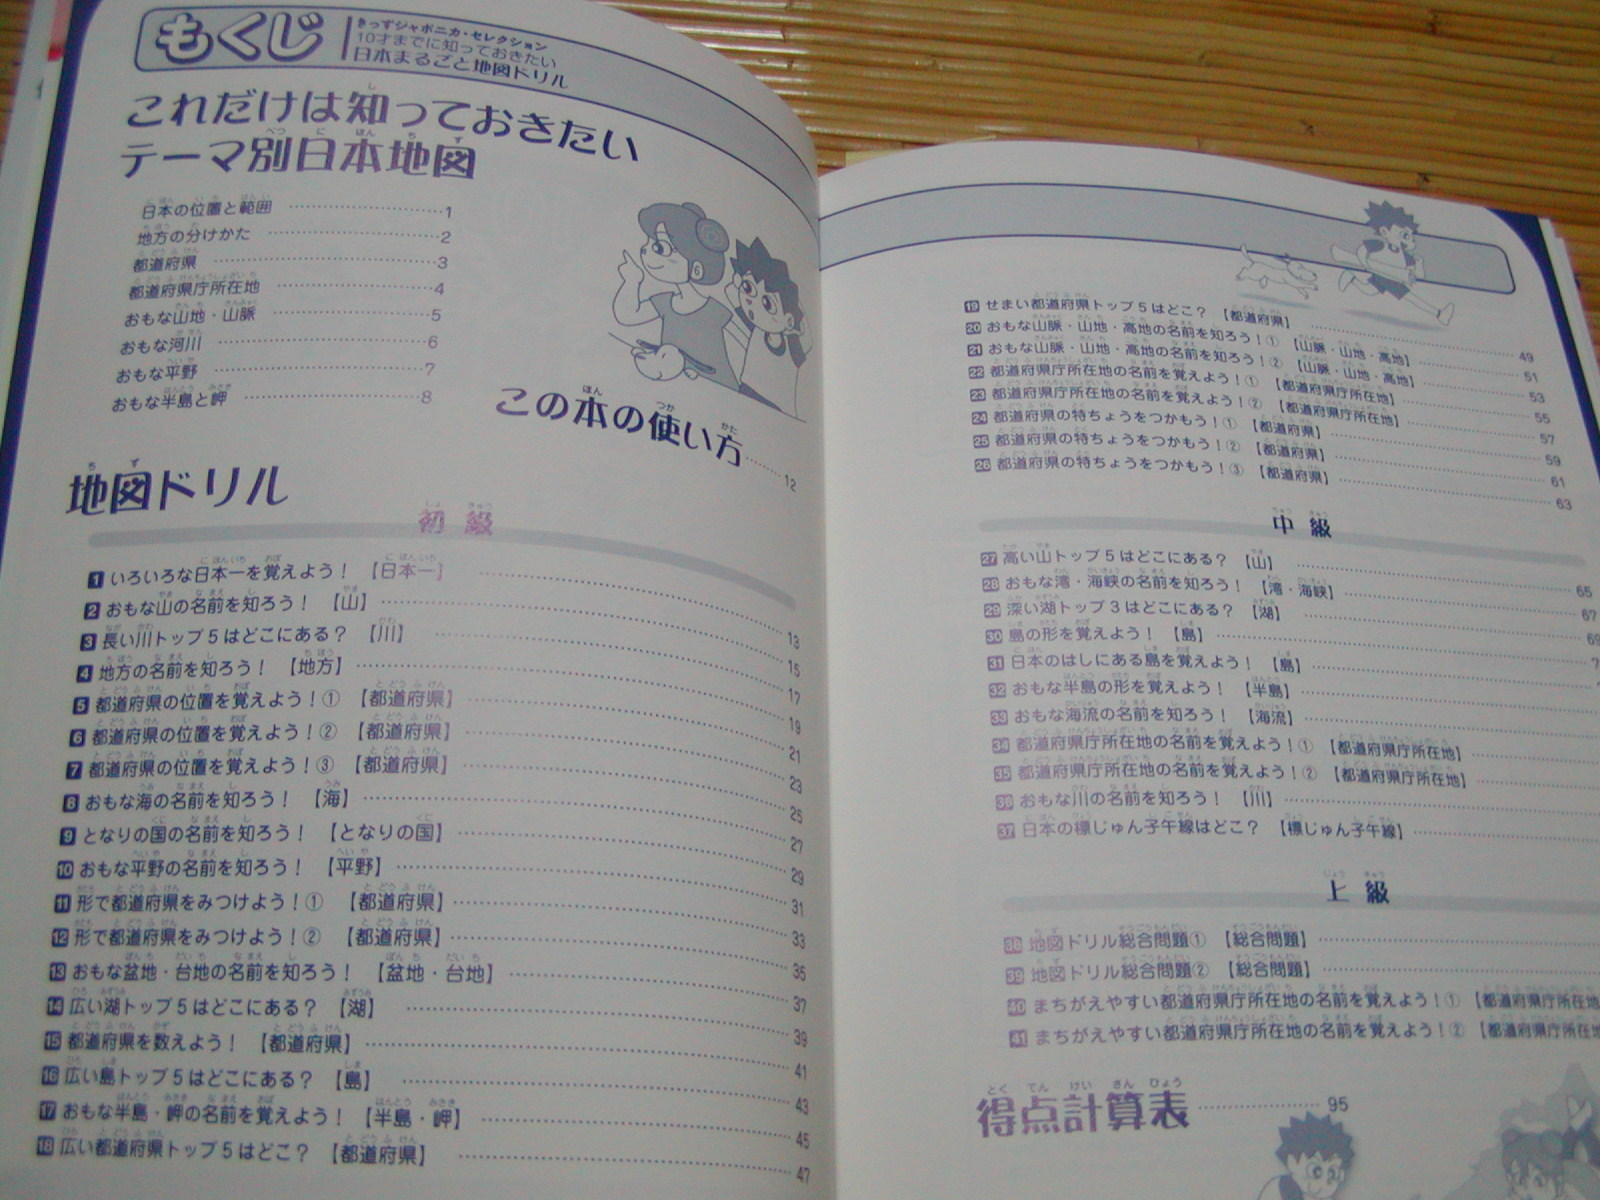 もくじ
きっずジャポニカ・セレクション
10才までに知っておきたい
日本まるごと地図ドリル
これだけは知っておきたい
テーマ別日本地図
日本の位置と範囲 1
地方の分けかた 2
都道府県 3
都道府県庁所在地 4
おもな山地・山脈 5
おもな河川 6
おもな平野 7
おもな半島と岬 8
この本の使い方 12
地図ドリル
初級
1 いろいろな日本一を覚えよう！【日本一】 13
2 おもな山の名前を知ろう！【山】 15
3 長い川トップ5はどこにある？【川】 17
4 地方の名前を知ろう！【地方】 19
5 都道府県の位置を覚えよう！①【都道府県】 21
6 都道府県の位置を覚えよう！②【都道府県】 23
7 都道府県の位置を覚えよう！③【都道府県】 25
8 おもな海の名前を知ろう！【海】 27
9 となりの国の名前を知ろう！【となりの国】 29
10 おもな平野の名前を知ろう！【平野】 31
11 形で都道府県をみつけよう！①【都道府県】 33
12 形で都道府県をみつけよう！②【都道府県】 35
13 おもな盆地・台地の名前を知ろう！【盆地・台地】 37
14 広い湖トップ5はどこにある？【湖】 39
15 都道府県を数えよう！【都道府県】 41
16 広い島トップ5はどこにある？【島】 43
17 おもな半島・岬の名前を覚えよう！【半島・岬】 45
18 広い都道府県トップ5はどこ？【都道府県】 47
19 せまい都道府県トップ5はどこ？【都道府県】 49
20 おもな山脈・山地・高地の名前を知ろう！①【山脈・山地・高地】 51
21 おもな山脈・山地・高地の名前を知ろう！②【山脈・山地・高地】 53
22 都道府県庁所在地の名前を覚えよう！①【都道府県庁所在地】 55
23 都道府県庁所在地の名前を覚えよう！②【都道府県庁所在地】 57
24 都道府県の特ちょうをつかもう！①【都道府県】 59
25 都道府県の特ちょうをつかもう！②【都道府県】 61
26 都道府県の特ちょうをつかもう！③【都道府県】 63
中級
27 高い山トップ5はどこにある？【山】 65
28 おもな湾・海峡の名前を知ろう！【湾・海峡】 67
29 深い湖トップ3はどこにある？【湖】 69
30 島の形を覚えよう！【島】
31 日本のはしにある島を覚えよう！【島】
32 おもな半島の形を覚えよう！【半島】
33 おもな海流の名前を知ろう！【海流】
34 都道府県庁所在地の名前を覚えよう！①【都道府県庁所在地】
35 都道府県庁所在地の名前を覚えよう！②【都道府県庁所在地】
36 おもな川の名前を知ろう！【川】
37 日本の標じゅん子午線はどこ？【標じゅん子午線】
上級
38 地図ドリル総合問題①【総合問題】
39 地図ドリル総合問題②【総合問題】
40 まちがえやすい都道府県庁所在地の名前を覚えよう！①【都道府県庁所在地
41 まちがえやすい都道府県庁所在地の名前を覚えよう！②【都道府県庁所在地
得点計算表 95